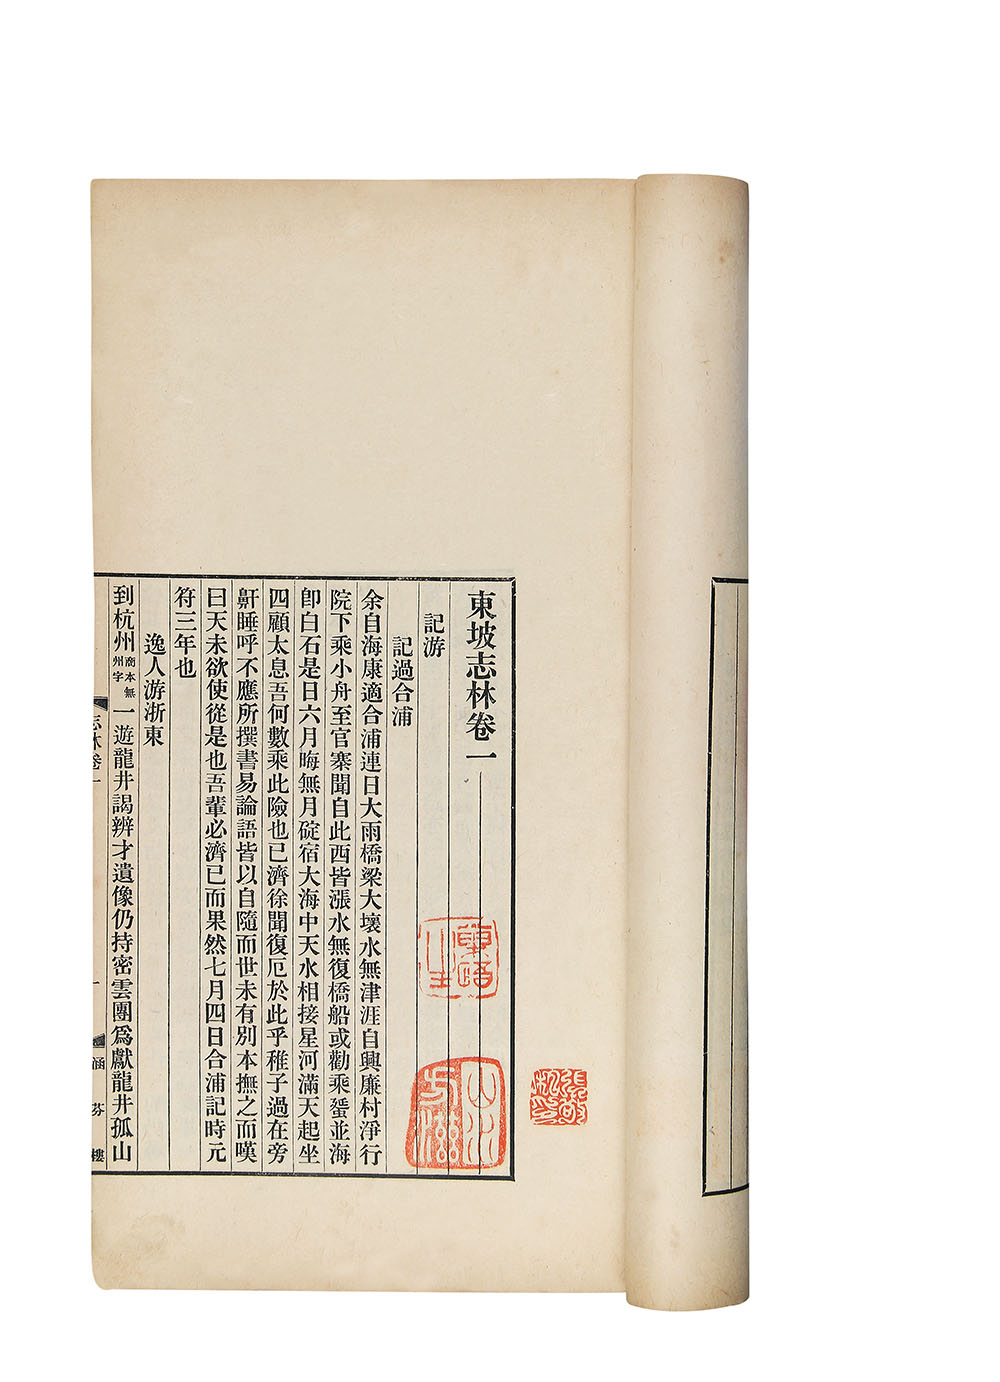 東坡志林卷一
記游
記過合浦
余自海康適合浦連日大雨橋梁大壞水無津涯自興廉村淨行
院下乘小舟至官寨聞自此西皆漲水無復橋船或勸乘蜑並海
卽白石是日六月晦無月碇宿大海中天水相接星河滿天起坐
四顧太息吾何數乘此險也已濟徐聞復厄於此乎稚子過在旁
鼾睡呼不應所撰書易論語皆以自隨而世未有別本撫之而嘆
曰天未欲使從是也吾輩必濟已而果然七月四日合浦記時元
符三年也
逸人游浙東
到杭州商本無州字一遊龍井謁辨才遺像仍持密雲團爲獻龍井孤山
志林卷一
一
涵芬樓